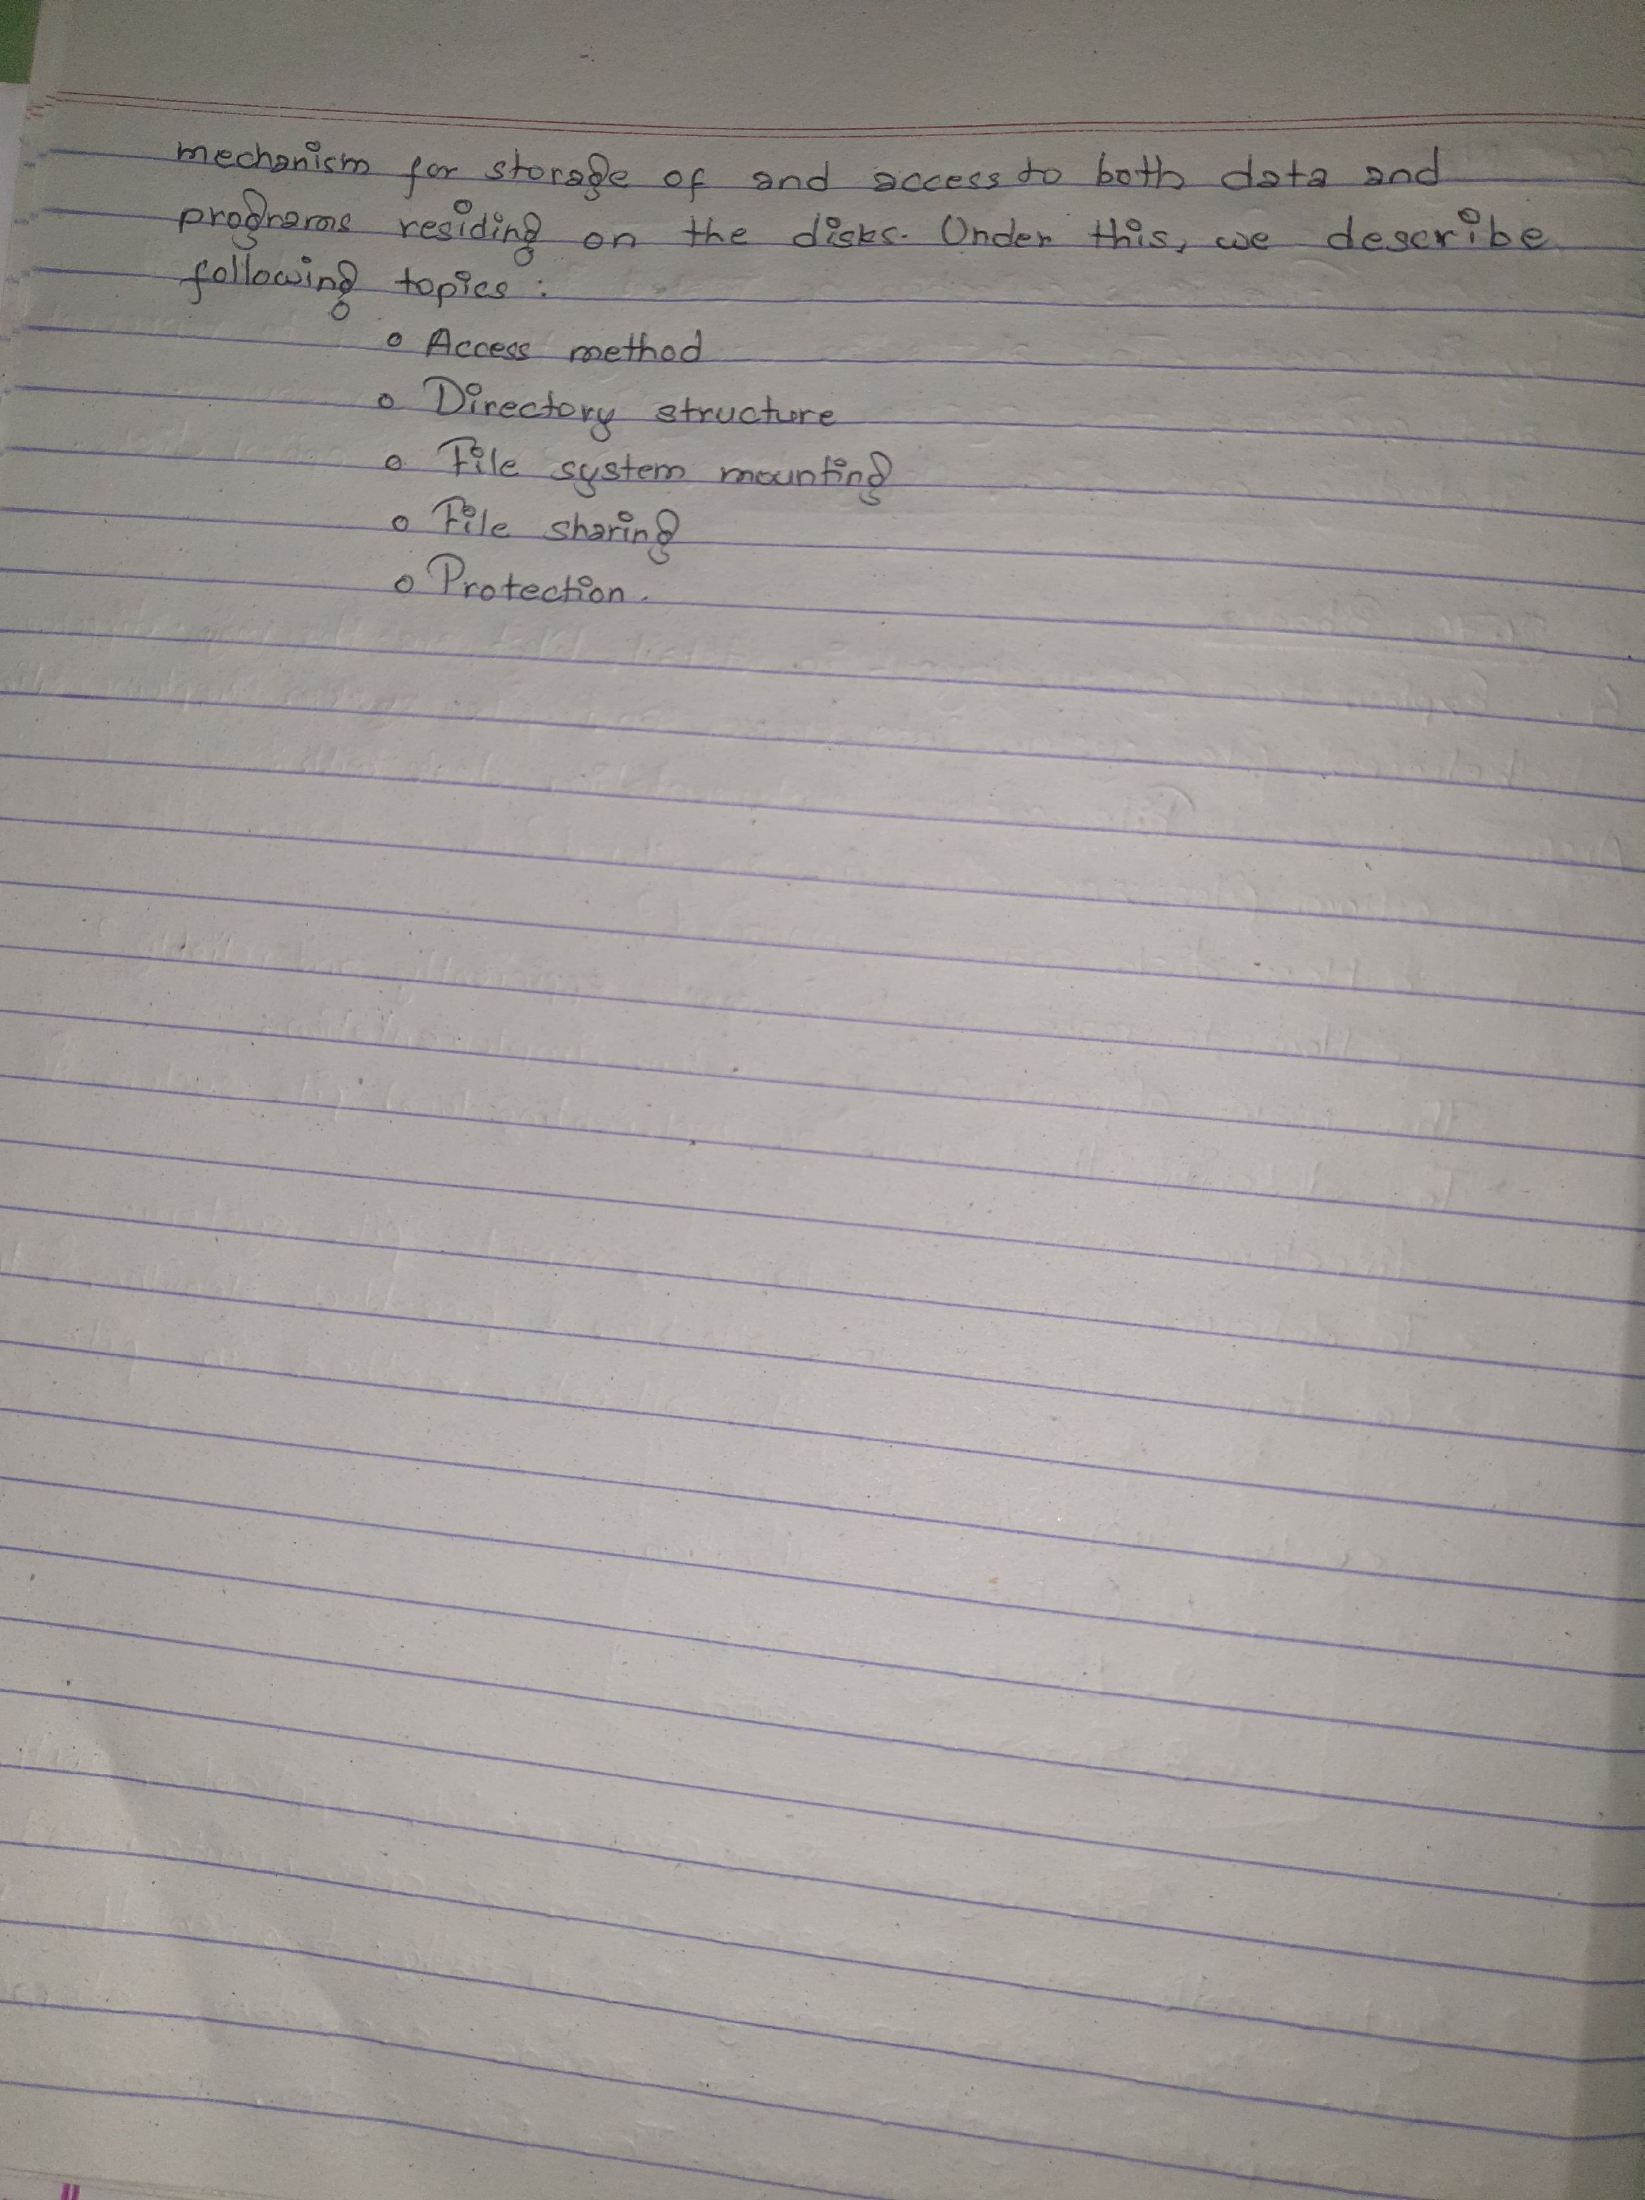 mechanism for storage of and access to both data and
programs residing on the disks. Under this, we describe
following topics :
o Access method
o Directory structure
o File system mounting
o File sharing
o Protection.